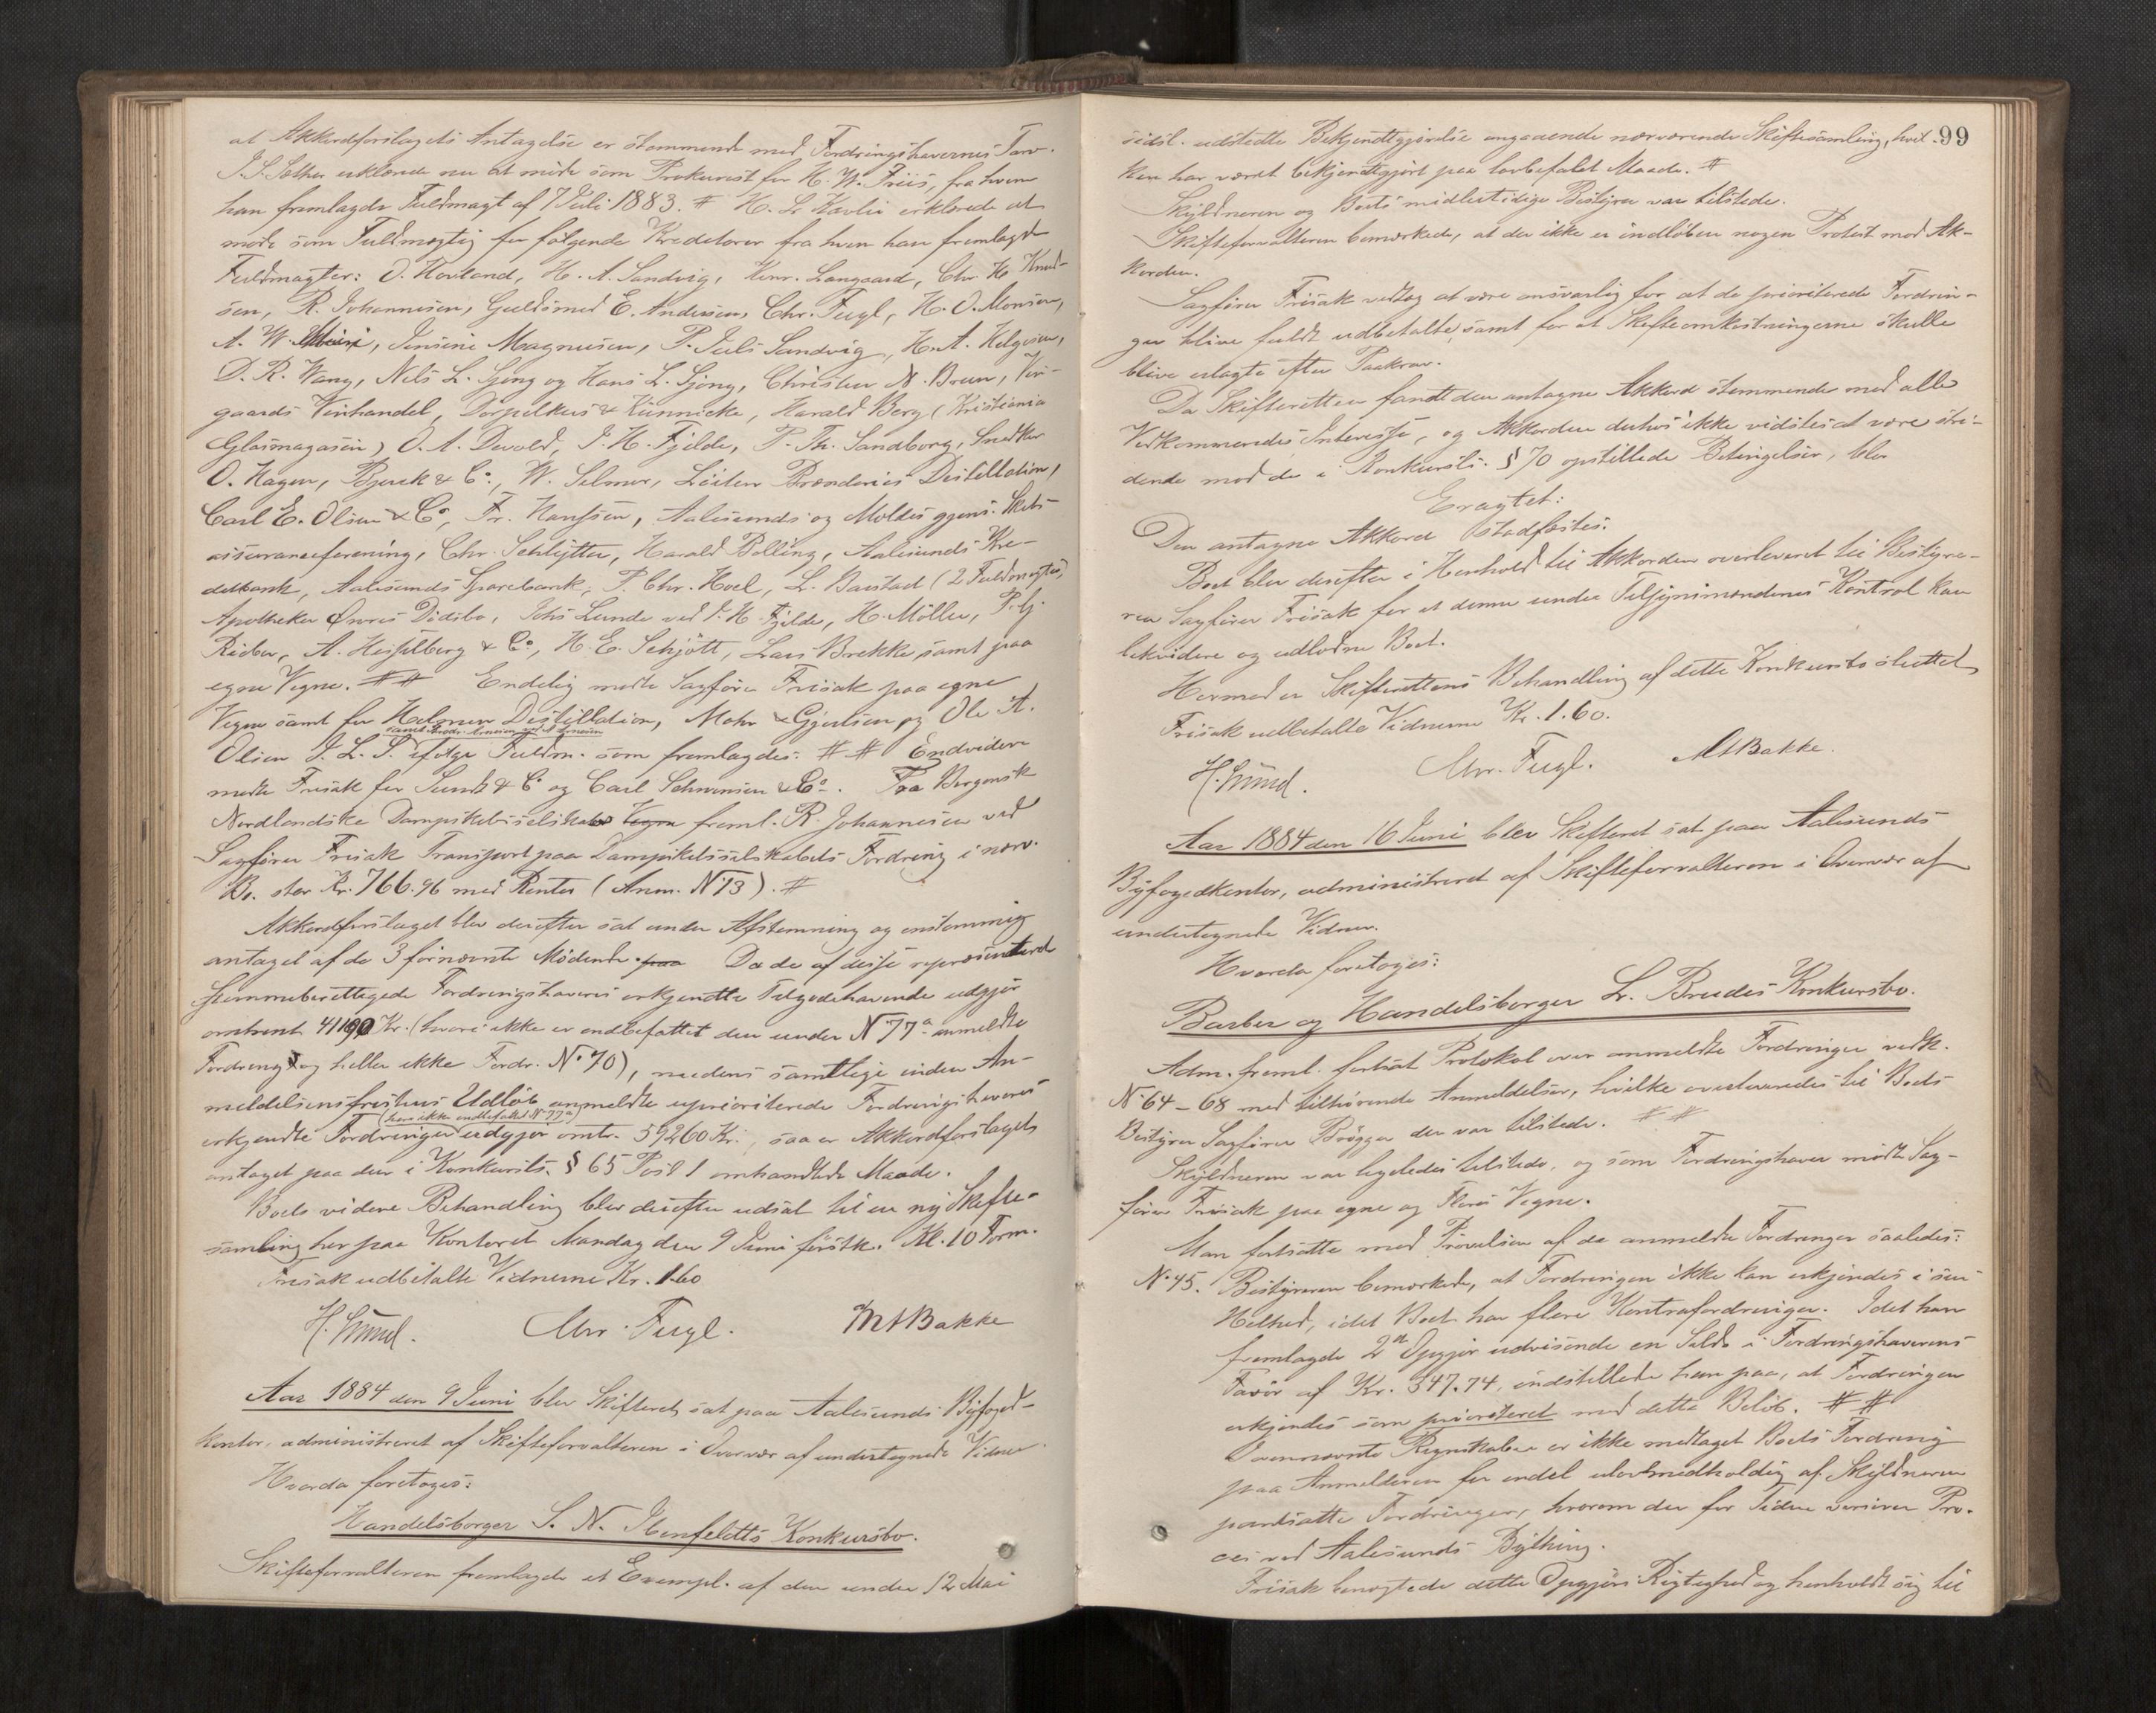 at Akkordforslagets Antagelse er stemmende med Fordringshavernes Tarv.
J. S. Sæther erklærede nu at møde som Prokurist for H. W. Friis, fra hvem
han fremlagde Fuldmagt af 7 Juli 1883. # H. L. Kavlie erklærede at
møde som Fuldmægtig for følgende Kreditorer fra hvem han fremlagde
Fuldmagter: O. Hovland, H. A. Sandvig, Henr. Langaard, Chr. H. Knud-
sen, R. Johannesen, Guldsmed E. Andersen, Chr. Fugl, H. O. Monsen,
A. W. , Jensine Magnussen, P. Juls Sandvig, H. A. Helgesen,
D. R. Wang, Nils L. Gjöng og Hans L. Gjöng, Christen N. Bruun, Vin-
gaards Vinhandel, Dörpelkus & Künnicke, Harald Berg (Kristiania
Glasmagasin) O. A. Devold, J. H. Fjelde, P. Th. Sandborg, Snedker
O. Hagen, Bjerck & Co, W. Selmer, Löiten Brænderies Destillation,
Carl E. Olsen & Co, Fr. Hanssen, Aalesunds og Moldes gjens. Skibs-
assuranceforening, Chr. Schlytter, Harald Bolling, Aalesunds Kre-
ditbank, Aalesunds Sparebank, P. Chr. Hoel, L. Barstad (2 Fuldmagter),
Apotheker Dödsbo, Johs Lunde ved J. H. Fjelde, H. Möller, P. G.
Rieber, A. Hesselberg & Co, H. E. Schjött, Lars Brekke samt paa
egne Vegne. ## Endelig mødte Sagfører Frisak paa egne
Vegne samt for Helmers Destillation, Mohr & Gjertsen og Ole A.
Olsen J. L. S. ifølge Fuldm. som fremlagdes. ## Endvidere
mødte Frisak for Sundt & Co og Carl Schwensen & Co. Fra Bergensk
Nordlandske Dampskibsselskabs Vegne freml. R. Johannesen ved
Sagfører Frisak Transport paa Dampskibsselskabets Fordring i nærv.
Bo. stor Kr. 766.96 med Renter (Anm. N 73). #
Akkordforslaget blev derefter sat under Afstemning og enstemmig
antaget af de 3 fornævnte Mødende. paa Da de af disse repræsenterede
stemmeberettigede Fordringshaveres erkjendte Tilgodehavende udgjør
omtrent 41190 Kr. (hvori ikke er indbefattet den under N 77a anmeldte
Fordring og heller ikke Fordr. No 70), medens samtlige inden An-
meldelsesfristens Udløb anmeldte uprioriterede Fordringshaveres
(heri ikke indbefattet N 77a)
erkjendte Fordringer udgjør omtr. 59260 Kr., saa er Akkordforslaget
antaget paa den i Konkursl. § 65 Post 1 omhandlede Maade.
Boets videre Behandling blev derefter udsat til en ny Skifte-
samling her paa Kontoret Mandag den 9 Juni førstk. Kl. 10 Form.
Frisak udbetalte Vidnerne Kr. 1.60
H. Chr. Fugl. MABakke
Aar 1884 den 9 Juni blev Skifteret sat paa Aalesunds Byfoged-
kontor, administreret af Skifteforvalteren i Overvær af undertegnede Vidner
Hvorda foretoges:
Handelsborger S. N. Ibenfeldts Konkursbo.
Skifteforvalteren fremlagde et Exempl. af den under 12 Mai
99
sidstl. udstedte Bekjendtgjørelse angaaende nærværende Skiftesamling, hvil-
ken har været bekjendtgjort paa lovbefalet Maade. #
Skyldneren og Boets midlertidige Bestyrer var tilstede.
Skifteforvalteren bemærkede, at der ikke er indløben nogen Protest mod Ak-
korden.
Sagfører Frisak vedtog at være ansvarlig for at de prioriterede Fordrin-
ger blive fuldt udbetalte, samt for at Skifteomkostningerne skulle
blive erlagte efter Paakrav.
Da Skifteretten fandt den antagne Akkord stemmende med alle
Vedkommendes Interesse, og Akkorden derhos ikke vidstes at være stri-
dende mod de i Konkursl. § 70 opstillede Betingelser, blev
Eragtet:
Den antagne Akkord stadfæstes.
Boet blev derefter i Henhold til Akkorden overleveret til Bestyre-
ren Sagfører Frisak for at denne under Tilsynsmændenes Kontrol kan
likvidere og udlodne Boet.
Hermed er Skifterettens Behandling af dette Konkursbo sluttet
Frisak udbetalte Vidnerne Kr. 1.60.
H. Chr. Fugl. MABakke.
Aar 1884 den 16 Juni blev Skifteret sat paa Aalesunds
Byfogedkontor, administreret af Skifteforvalteren i Overvær af
undertegnede Vidner.
Hvorda foretoges:
Barber og Handelsborger L. Brudes Konkursbo.
Adm. freml. fortsat Protokol over anmeldte Fordringer vedk.
No 64–68 med tilhørende Anmeldelser, hvilke overleveredes til Boets
Bestyrer Sagfører Brøgger der var tilstede. ##
Skyldneren var ligeledes tilstede, og som Fordringshaver mødte Sag-
fører Frisak paa egne og Fleres Vegne.
Man fortsatte med Prøvelsen af de anmeldte Fordringer saaledes:
No 45. Bestyreren bemærkede, at Fordringen ikke kan erkjendes i sin
Helhed, idet Boet har flere Kontrafordringer. Idet han
fremlagde 2de Opgjør udvisende en Saldo i Fordringshaverens
Favør af Kr. 347.74, indstillede han paa, at Fordringen
erkjendes som prioriteret med dette Beløb. ##
I ovennævnte Regnskaber er ikke medtaget Boets Fordring
paa Anmelderen for endel ulovmedholdig af Skyldneren
pantsatte Fordringer, hvorom der for Tiden verserer Pro-
ces ved Aalesunds Bything.
Frisak benegtede dette Opgjørs Rigtighed og henholdt sig til